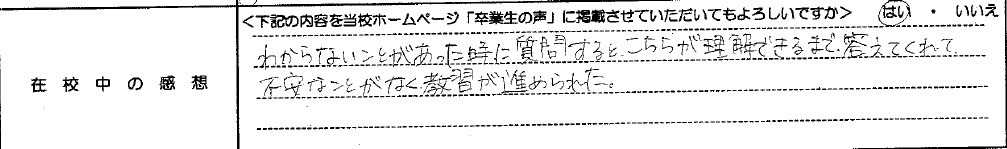 ＜下記の内容を当校ホームページ「卒業生の声」に掲載させていただいてもよろしいですか＞ はい ・ いいえ
在校中の感想
わからないことがあった時に質問すると、こちらが理解できるまで、答えてくれて、
不安なことがなく教習が進められた。